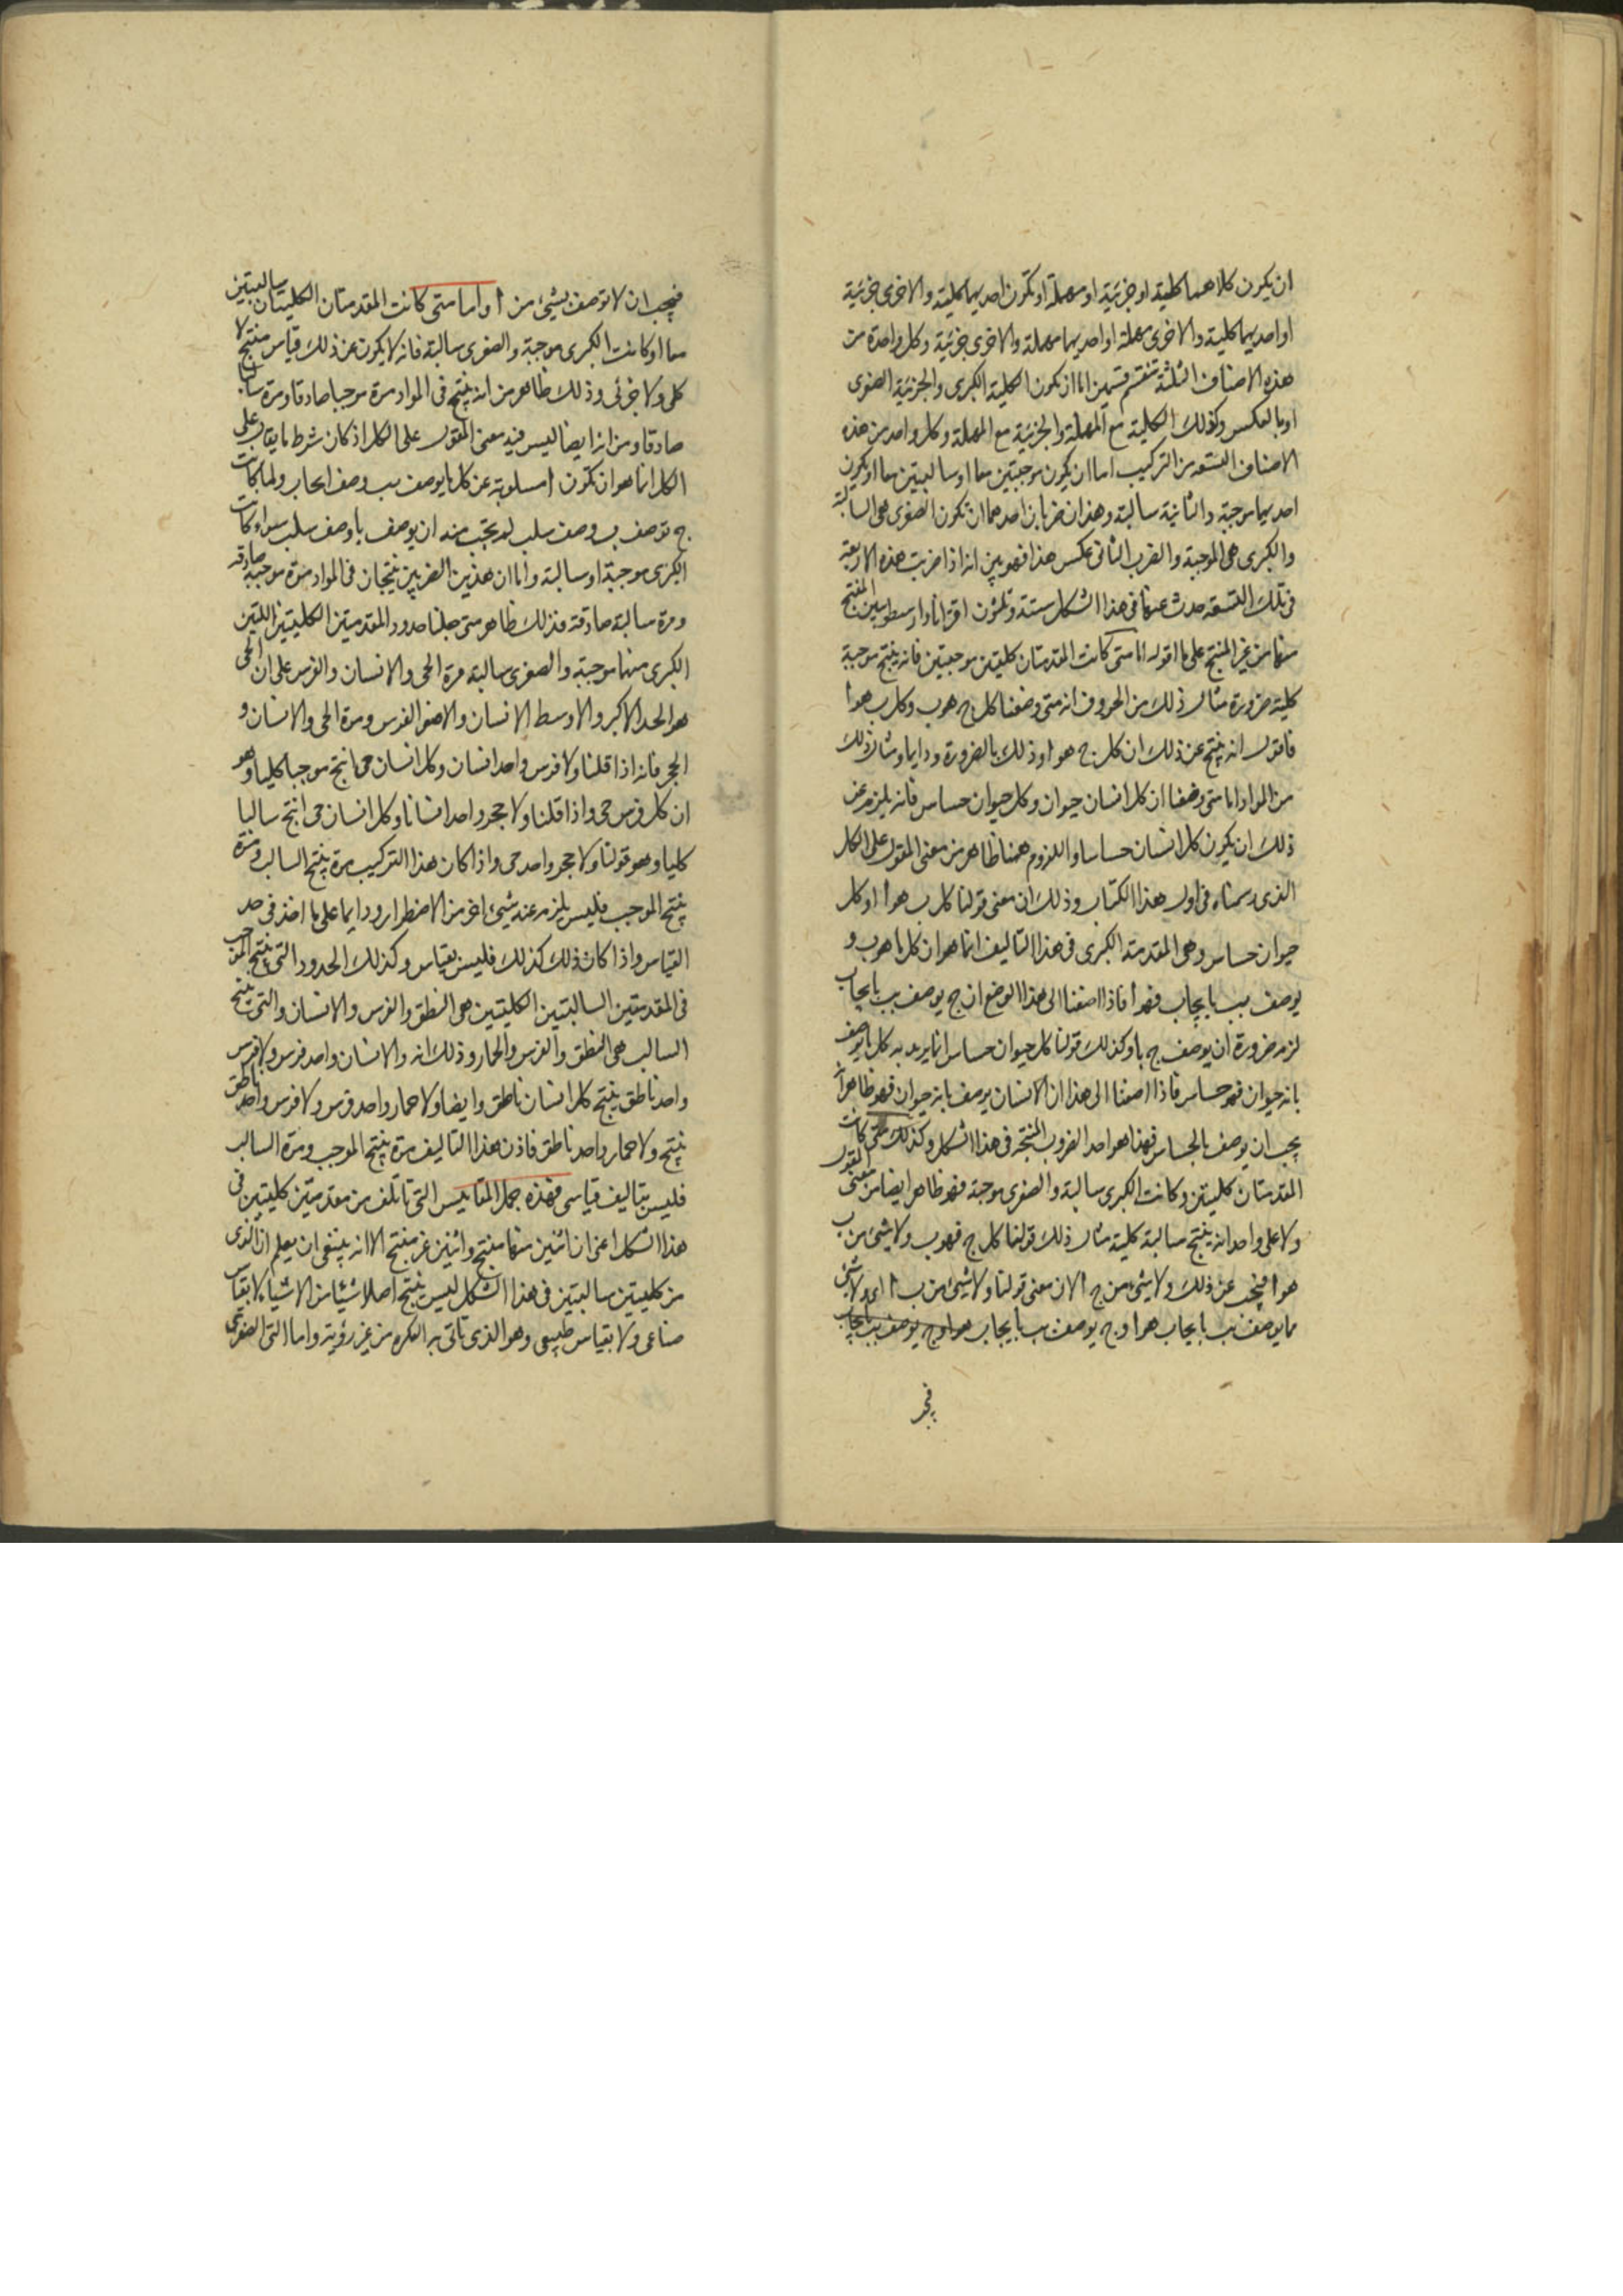 ان يكون كلاهما كلية او جزئية او مهملة او تكون احديهما كلية والاخرى جزئية
او احديهما كلية والاخرى مهملة او احديهما مهملة والاخرى جزئية وكل واحدة من
هذه الاصناف الثلثة تنقسم قسمين اما ان يكون الكلية الكبرى والجزئية الصغرى
او بالعكس وكذلك الكلية مع المهملة والجزئية مع المهملة وكل واحد من هذه
الاصناف التسعة من التركيب اما ان يكون موجبتين معا او سالبتين معا او يكون
احديهما موجبة والثانية سالبة وهذان ضربان احدهما ان تكون الصغرى هى السالبة
والكبرى هى الموجبة والضرب الثانى عكس هذا فهو بين انه اذا ضربت هذه الاربعة
فى تلك التسعة حدث عنها فى هذا الشكل ستة وثلثون اقترانا وارسطو يبين المنتج
منها من غير المنتج على ما اقوله اما متى كانت المقدمتان كليتين موجبتين فانه ينتج موجبة
كلية ضرورة مثال ذلك من الحروف انه متى وضعنا كل ج هو ب وكل ب هو ا
فاقول انه ينتج عن ذلك ان كل ج هو ا وذلك بالضرورة ودايما ومثال ذلك
من المواد اما متى وضعنا ان كل انسان حيوان وكل حيوان حساس فانه يلزم عن
ذلك ان يكون كل انسان حساسا واللزوم ههنا ظاهر من معنى المقول على الكل
الذى رسمناه فى اول هذا الكتاب وذلك ان معنى قولنا كل ب هو ا او كل
حيوان حساس وهى المقدمة الكبرى فى هذا التاليف انما هو ان كل ما هو ب و
يوصف بب بايجاب فهو ا فاذا اضفنا الى هذا الوضع ان ج يوصف بب بايجاب
لزم ضرورة ان يوصف ج با وكذلك قولنا كل حيوان حساس انما يريد به كل ما يوصف
بانه حيوان فهو حساس فاذا اضفنا الى هذا ان الانسان يوصف بانه حيوان فهو ظاهر انه
يجب ان يوصف بالحساس فهذا هو احد الضروب المنتجة فى هذا الشكل وكذلك متى كانت
المقدمتان كليتين وكانت الكبرى سالبة والصغرى موجبة فهو ظاهر ايضا من معنى القول
ولا على واحد انه ينتج سالبة كلية مثال ذلك قولنا كل ج فهو ب ولا شئ من ب
هو ا فينتج عن ذلك ولا شئ من ج ا لان معنى قولنا ولا شئ من ب ا اى ولا شئ
مما يوصف بب بايجاب هو ا و ج يوصف بب بايجاب هو ا و ج يوصف بب بايجاب
فيجب
فيجب ان لا توصف بشئ من ا واما متى كانت المقدمتان الكليتان سالبتين
معا او كانت الكبرى موجبة والصغرى سالبة فانه لا يكون عن ذلك قياس منتج لا
كلى ولا جزئى وذلك ظاهر من انه ينتج فى المواد مرة موجبا صادقا ومرة سالبا
صادقا ومن انه ايضا ليس فيه معنى المقول على الكل اذ كان شرط ما يقال على
الكل انما هو ان تكون ا مسلوبة عن كل ما يوصف بب وصف ايجاب ولما كانت
ج توصف بب وصف سلب لم يجب منه ان يوصف با وصف سلب سوا كانت
الكبرى موجبة او سالبة واما ان هذين الضربين ينتجان فى المواد مرة موجبة صادقة
ومرة سالبة صادقة فذلك ظاهر متى جعلنا حدود المقدمتين الكليتين اللتين
الكبرى منهما موجبة والصغرى سالبة مرة الحى والانسان والفرس على ان الحى
هو الحد الاكبر والاوسط الانسان والاصغر الفرس ومرة الحى والانسان و
الحجر فانه اذا قلنا ولا فرس واحد انسان وكل انسان حى انتج موجبا كليا وهو
ان كل فرس حى واذا قلنا ولا حجر واحد انسانا وكل انسان حى انتج سالبا
كليا وهو قولنا ولا حجر واحد حى واذا كان هذا التركيب مرة ينتج السالب ومرة
ينتج الموجب فليس يلزم عنه شئ اخر من الاضطرار ودايما على ما اخذ فى حد
القياس واذا كان ذلك كذلك فليس بقياس وكذلك الحدود التى ينتج الموجب
فى المقدمتين السالبتين الكليتين هى النطق والفرس والانسان والتى ينتج
السالب هى النطق والفرس والحمار وذلك انه ولا انسان واحد فرس ولا فرس
واحد ناطق ينتج كل انسان ناطق وايضا ولا حمار واحد فرس ولا فرس واحد ناطق
ينتج ولا حمار واحد ناطق فاذن هذا التاليف مرة ينتج الموجب ومرة السالب
فليس بتاليف قياسى فهذه جمل المقاييس التى تاتلف من مقدمتين كليتين فى
هذا الشكل اعنى ان اثنين منها منتج واثنين غير منتج الا انه ينبغى ان يعلم ان الذى
من كليتين سالبتين فى هذا الشكل ليس ينتج اصلا شيئا من الاشياء لا بقياس
صناعى ولا بقياس طبيعى وهو الذى تاتى به الفكرة من غير رؤية واما التى الصغرى